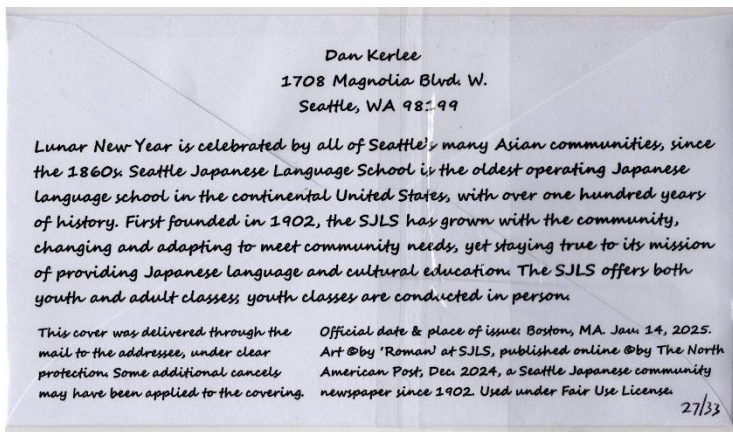 Dan Kerlee
1708 Magnolia Blvd. W.
Seattle, WA 98199
Lunar New Year is celebrated by all of Seattle's many Asian communities, since
the 1860s. Seattle Japanese Language School is the oldest operating Japanese
language school in the continental United States, with over one hundred years
of history. First founded in 1902, the SJLS has grown with the community,
changing and adapting to meet community needs, yet staying true to its mission
of providing Japanese language and cultural education. The SJLS offers both
youth and adult classes; youth classes are conducted in person.
This cover was delivered through the
mail to the addressee, under clear
protection. Some additional cancels
may have been applied to the covering.
Official date & place of issue: Boston, MA. Jan. 14, 2025.
Art ©by 'Roman' at SJLS, published online ©by The North
American Post, Dec. 2024, a Seattle Japanese community
newspaper since 1902. Used under Fair Use License.
27/33